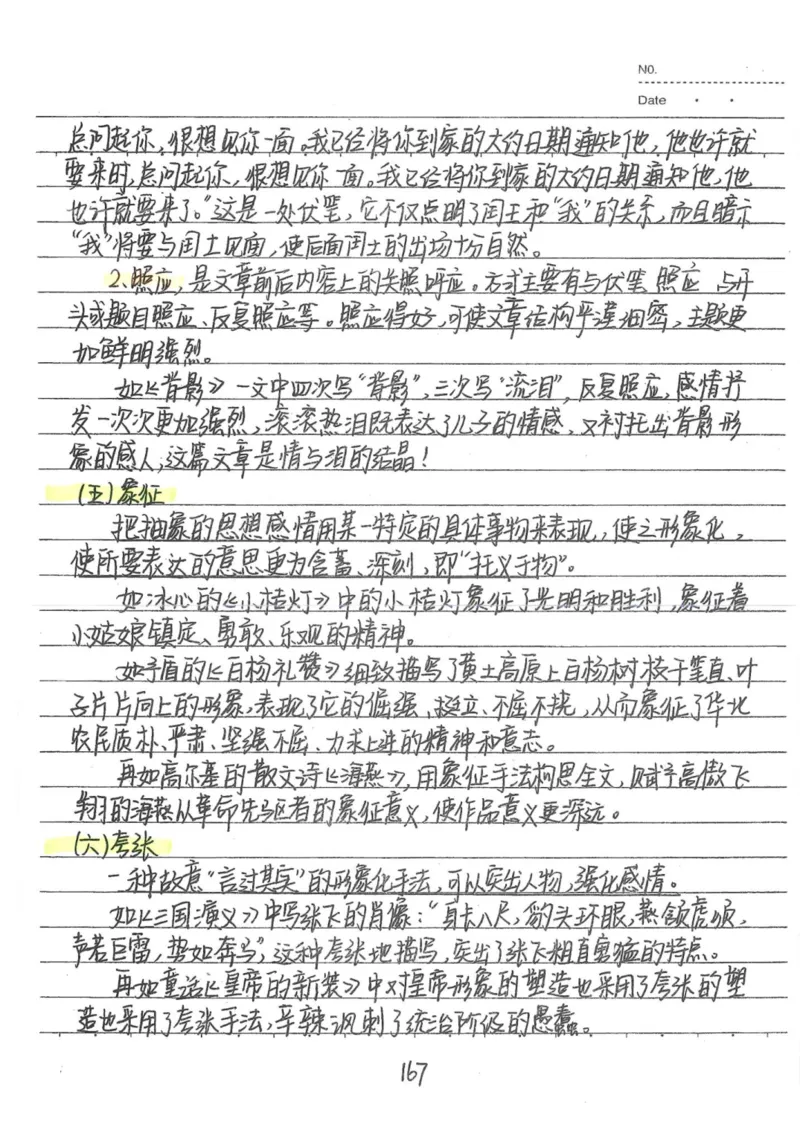 NO.
Date
总问起你,很想见你一面。我已经将你到家的大约日期通知他,他也许就
要来时,总问起你,很想见你一面。我已经将你到家的大约日期通知他,他
也许就要来了。"这是一处伏笔,它不仅点明了闰土和"我"的关系,而且暗示
"我"将要与闰土见面,使后面闰土的出场十分自然。
2、照应,是文章前后内容上的关照呼应。方式主要有与伏笔照应、与开
头或题目照应、反复照应等。照应得好,可使文章结构严谨细密,主题更
加鲜明强烈。
如《背影》一文中四次写"背影",三次写"流泪",反复照应,感情抒
发一次次更加强烈,滚滚热泪既表达了儿子的情感,又衬托出背影形
象的感人,这篇文章是情与泪的结晶!
(五)象征
把抽象的思想感情用某一特定的具体事物来表现,使之形象化,
使所要表达的意思更为含蓄、深刻,即"托义于物"。
如冰心的《小桔灯》中的小桔灯象征了光明和胜利,象征着
小姑娘镇定、勇敢、乐观的精神。
如矛盾的《白杨礼赞》细致描写了黄土高原上白杨树枝干笔直、叶
子片片向上的形象,表现了它的倔强、挺立、不屈不挠,从而象征了华北
农民质朴、严肃、坚强不屈、力求上进的精神和意志。
再如高尔基的散文诗《海燕》,用象征手法构思全文,赋予高傲飞
翔的海燕从革命先驱者的象征意义,使作品意义更深远。
(六)夸张
一种故意"言过其实"的形象化手法,可以突出人物,强化感情。
如《三国演义》中写张飞的肖像:"身长八尺,豹头环眼,燕颔虎须,
声若巨雷,势如奔马",这种夸张地描写,突出了张飞粗直勇猛的特点。
再如童话《皇帝的新装》中对皇帝形象的塑造也采用了夸张的塑
造也采用了夸张手法,辛辣讽刺了统治阶级的愚蠢。
167